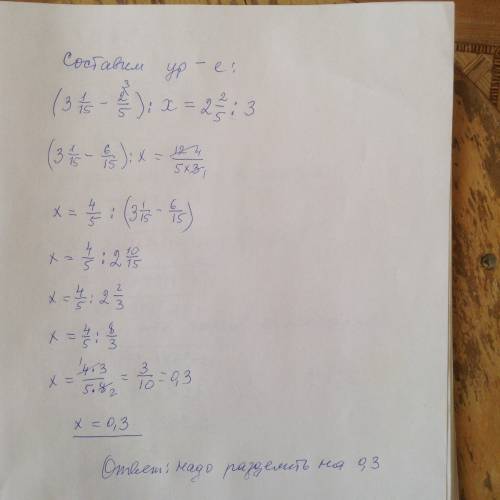 Составим ур-е:
(3 1/15 - 2/5 ³) : x = 2 2/5 : 3
(3 1/15 - 6/15) : x = 12 4/5×3 1
x = 4/5 : (3 1/15 - 6/15)
x = 4/5 : 2 10/15
x = 4/5 : 2 2/3
x = 4/5 : 8/3
x = ¹4·3/5·8 ₂ = 3/10 = 0,3
x = 0,3
Ответ: надо разделить на 0,3